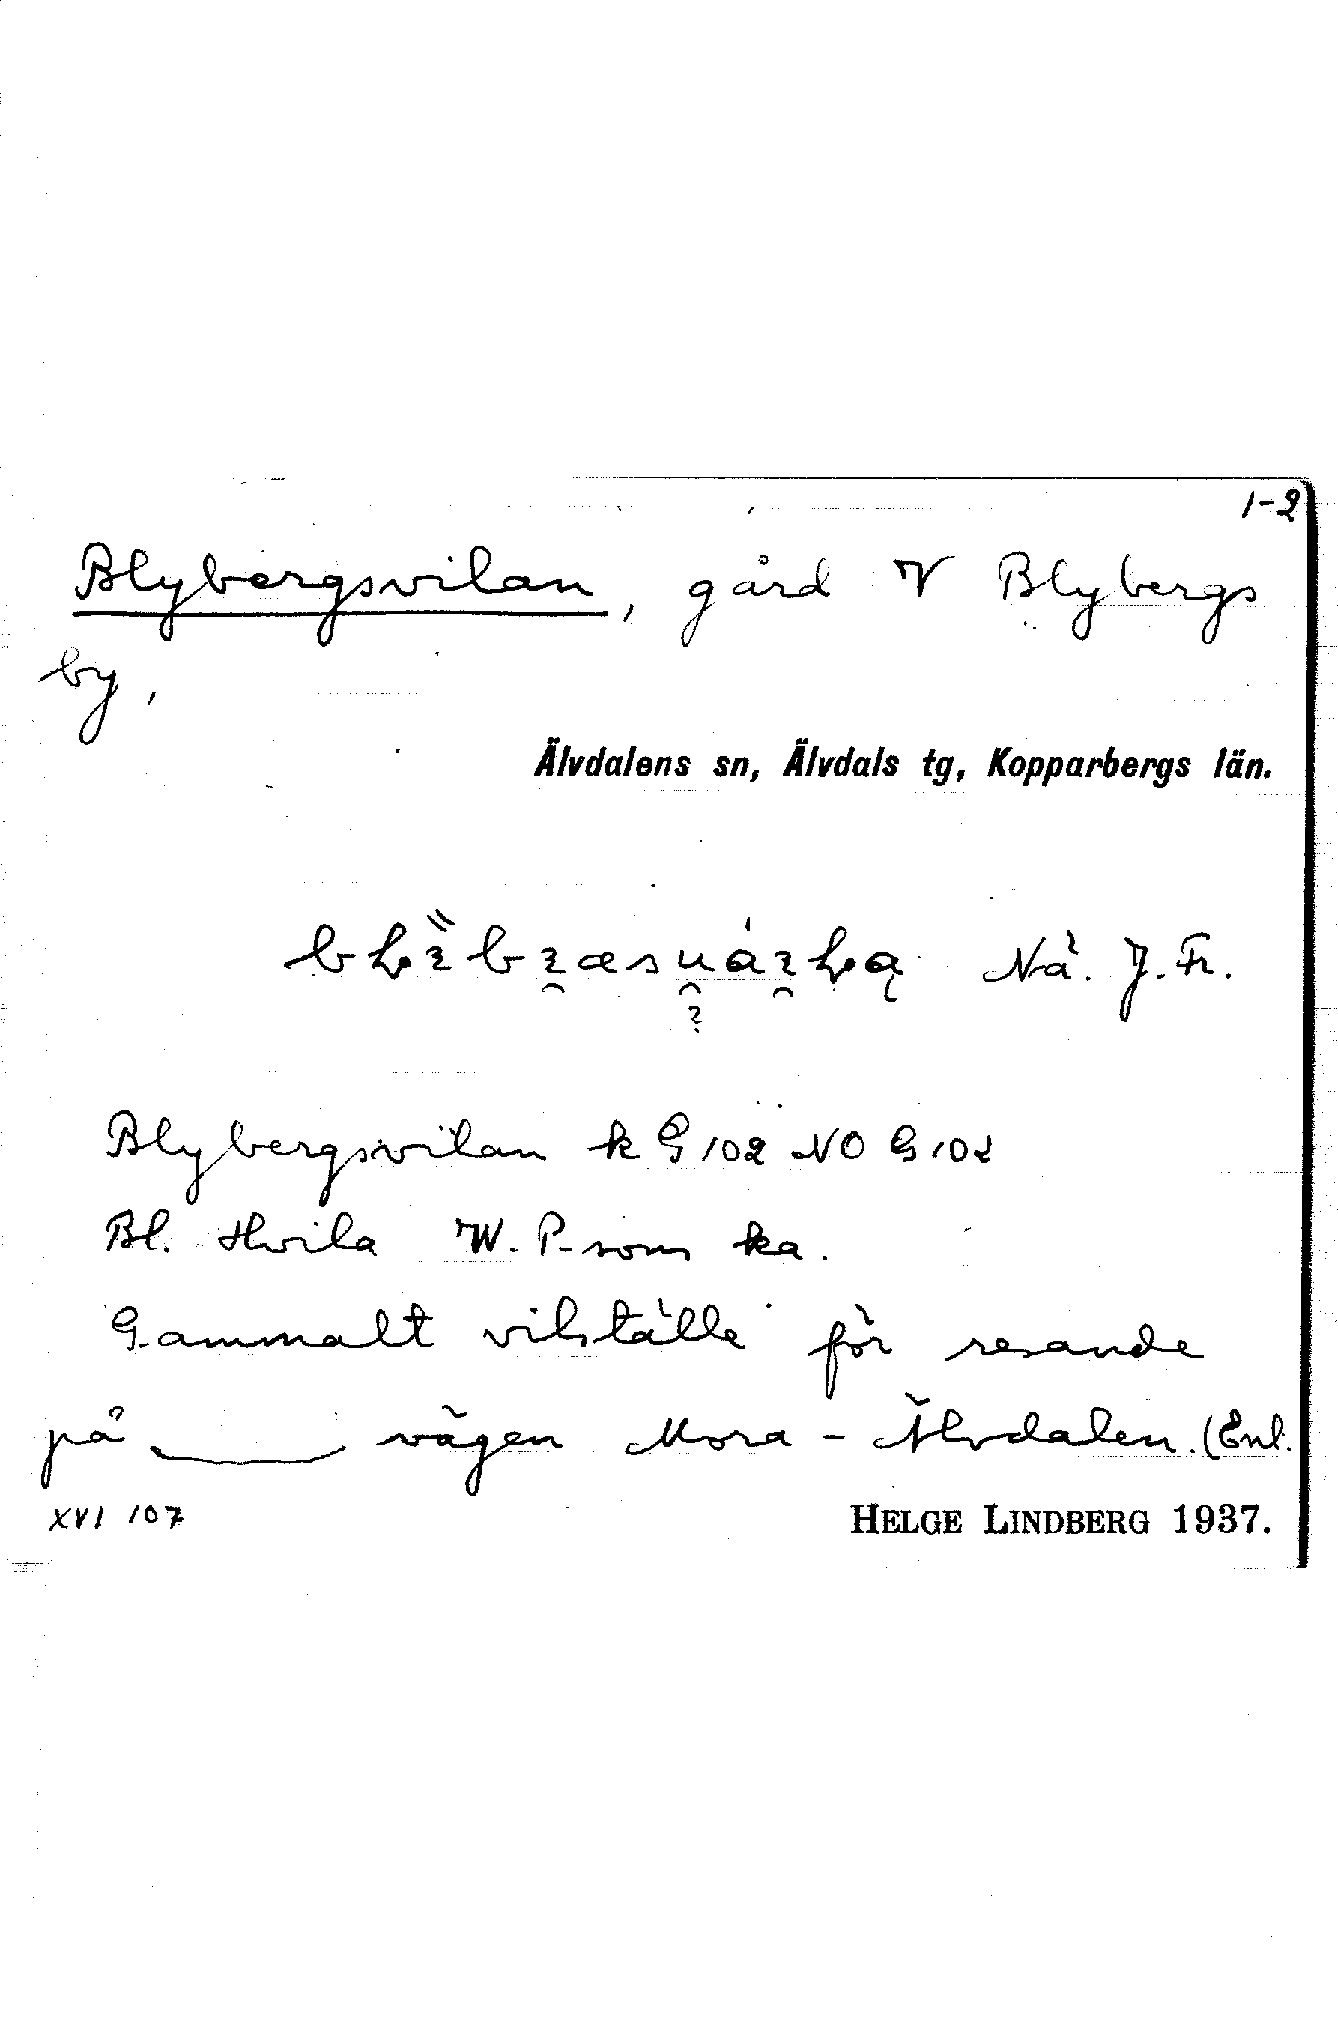 1-2
Blybergsvilan, gård V Blybergs
by,
Älvdalens sn, Älvdals tg, Kopparbergs län.
Nä. J. Fr.
Blybergsvilan k G 102 NO G 102
Bl. Hvila W. P-som ka.
Gammalt vilställe för resande
på vägen Mora - Älvdalen. (Enl.
XVI 107
HELGE LINDBERG 1937.